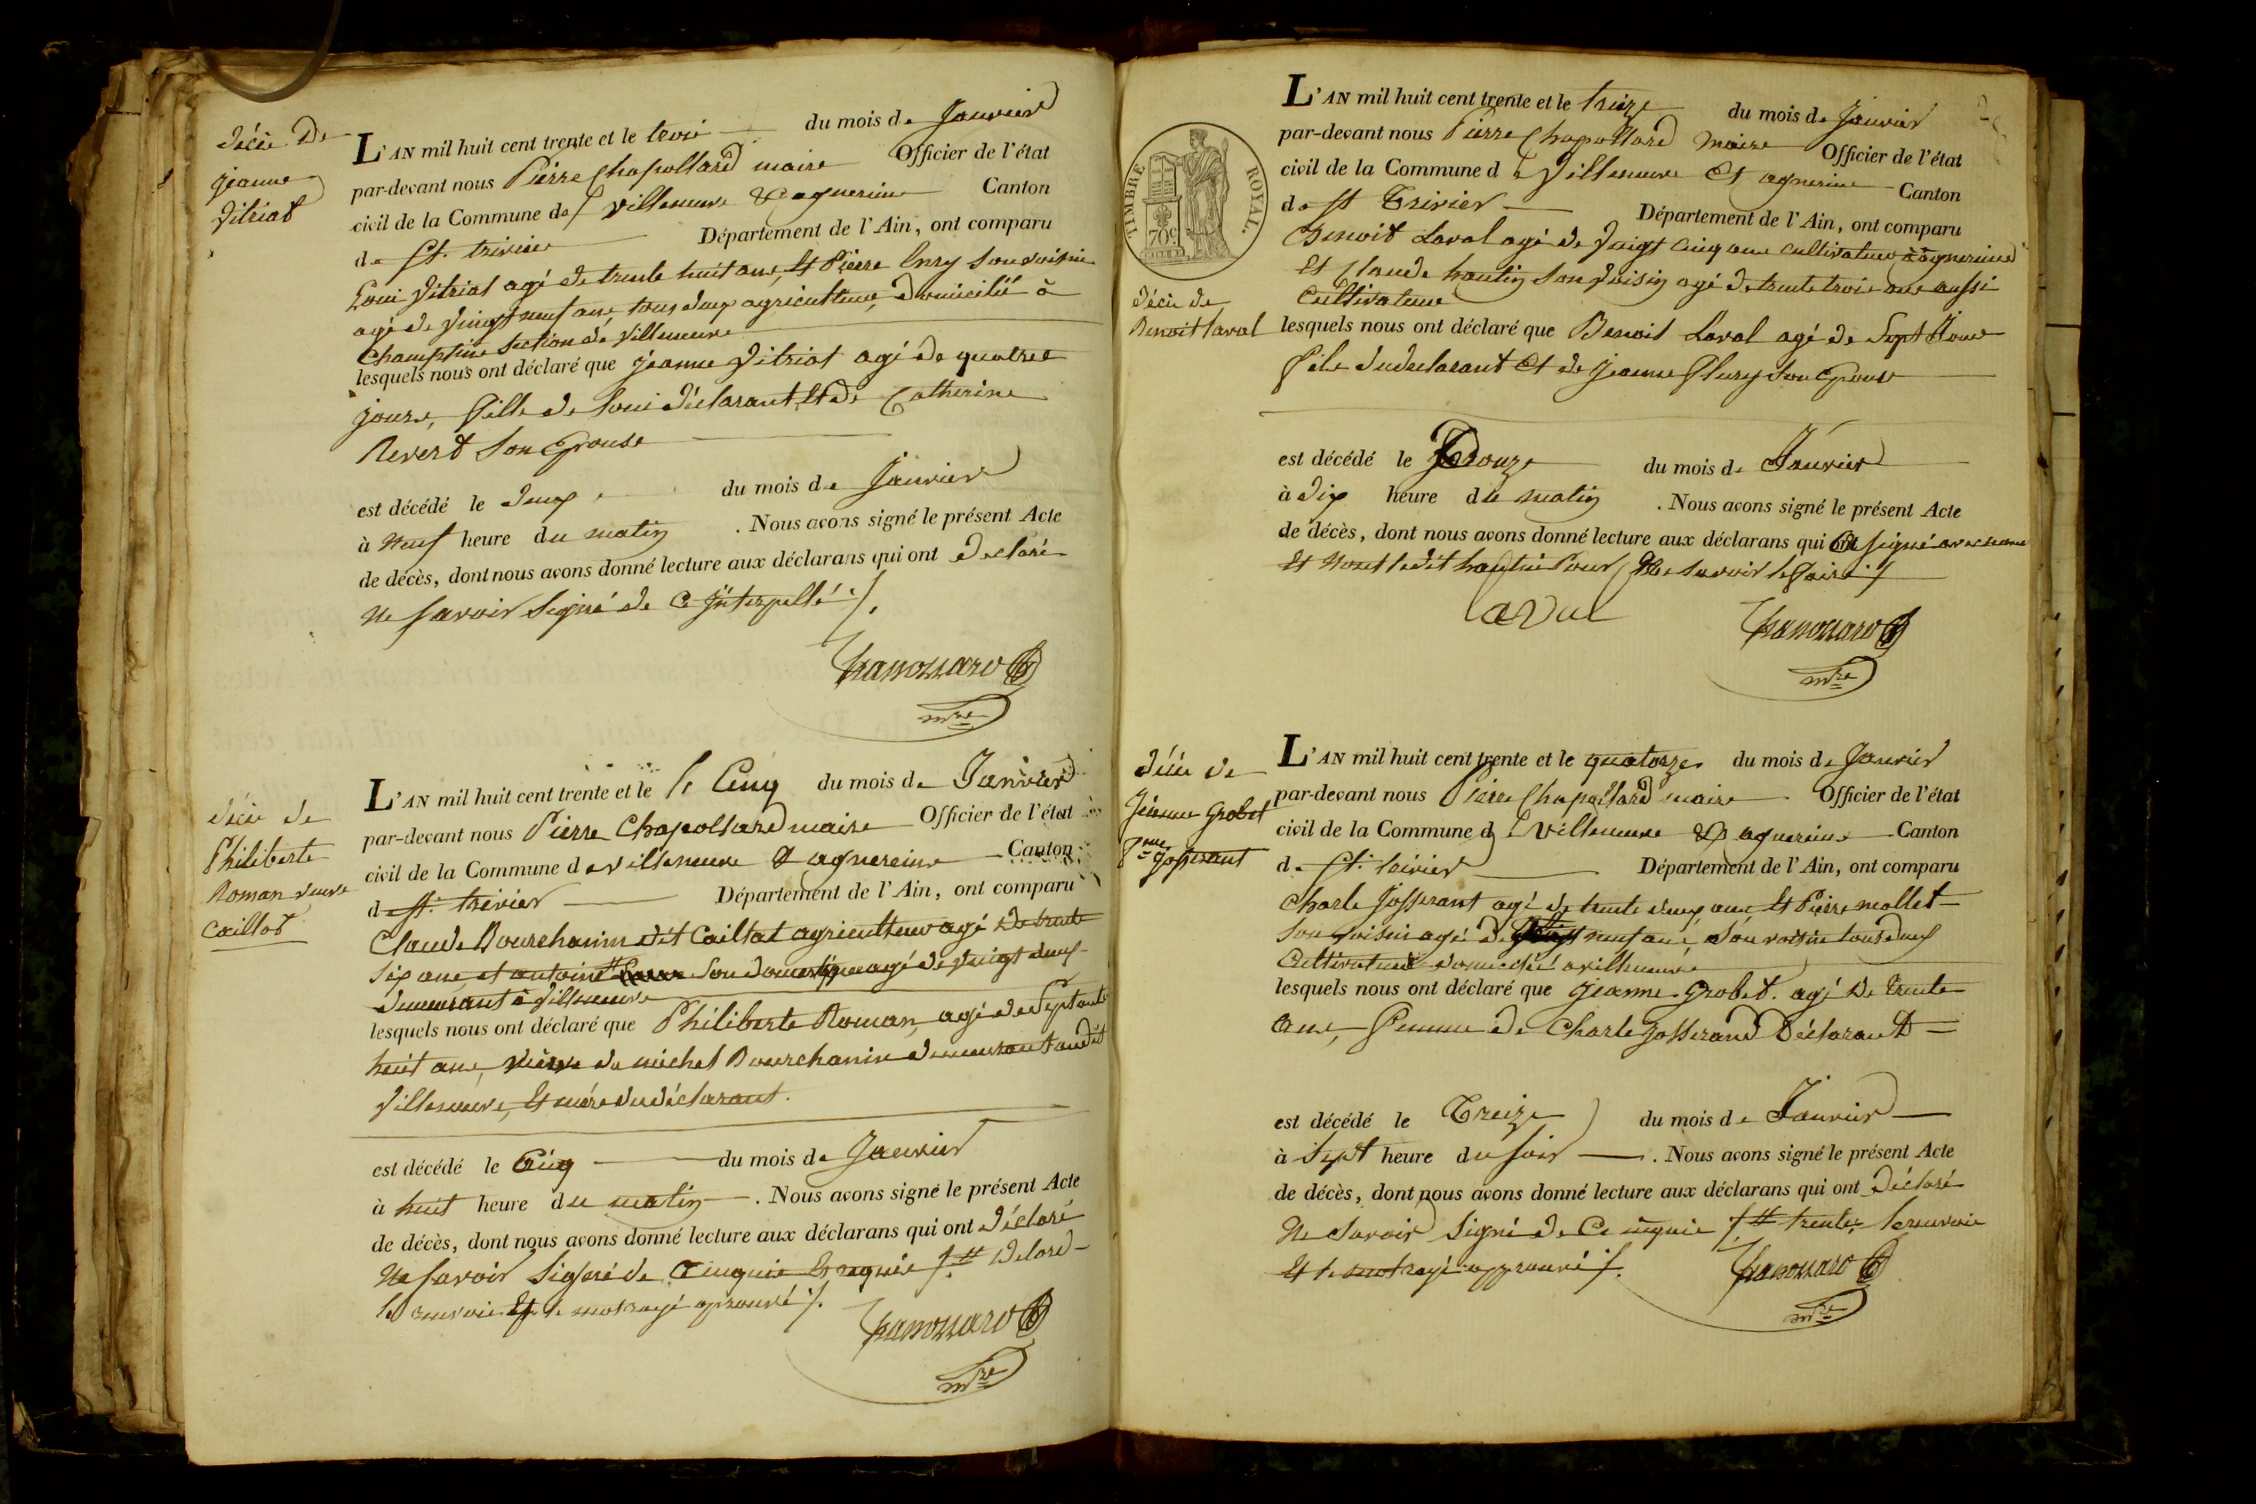 décès de
jeanne
Vitriat
L'AN mil huit cent trente et le trois du mois de Janvier
par-devant nous Pierre Chapollard maire Officier de l'état
civil de la Commune de villeneuve & agnereins Canton
de St. trivier Département de l'Ain, ont comparu
Loui Vitriat agé de trente huit ans, et Pierre son voisin
agé de Vingt neuf ans, tous deux agriculteurs, domicilié à
Champtin section de Villeneuve
lesquels nous ont déclaré que jeanne Vitriat agé de quatre
jours, fille de Loui déclarant, et de Catherine
Revert Son Epouse
est décédé le deux du mois de Janvier
à Neuf heure du matin . Nous avons signé le présent Acte
de décès, dont nous avons donné lecture aux déclarans qui ont declaré
Ne Savoir Signé de Ce interpellé ./.
mre
décès de
Philiberte
Roman veuve
Caillat
L'AN mil huit cent trente et le le Cinq du mois de Janvier
par-devant nous Pierre Chapollard maire Officier de l'état
civil de la Commune de villeneuve & agnereins Canton
de St. trivier Département de l'Ain, ont comparu
Claude Bourchanin dit Caillat agriculteur agé de trente
Six ans, et antoine son domestique agé de vingt deux
demeurant à Villeneuve
lesquels nous ont déclaré que Philiberte Roman, agé de Septante
huit ans, veuve de michel Bourchanin demeurant audit
Villeneuve, et mére du déclarant.
est décédé le Cinq du mois de Janvier
à huit heure du matin . Nous avons signé le présent Acte
de décès, dont nous avons donné lecture aux déclarans qui ont déclaré
Ne Savoir Signé de
le renvoi et le mot rayé aprouvé ./.
mre
TIMBRE ROYAL.
70c
décès de
Benoit laval
L'AN mil huit cent trente et le treize du mois de Janvier
par-devant nous Pierre Chapollard maire Officier de l'état
civil de la Commune de Villeneuve Et agnereins Canton
de St Trivier Département de l'Ain, ont comparu
Benoit Laval agé de Vingt cinq ans cultivateur à agnereins
Et Claude hautin son voisin agé de trente trois ans aussi
Cultivateur
lesquels nous ont déclaré que Benoit Laval agé de Sept Jours
fils du declarant et de Jeanne Flury Son Epouse
est décédé le Douze du mois de Janvier
à dix heure du matin . Nous avons signé le présent Acte
de décès, dont nous avons donné lecture aux déclarans qui ont signé avec nous
Et Nont ledit hautin Pour Ne savoir le faire ./.
Laval
mre
décès de
Jeanne Grobet
fme Josserant
L'AN mil huit cent trente et le quatorze du mois de Janvier
par-devant nous Pierre Chapollard maire Officier de l'état
civil de la Commune de Villeneuve & agnereins Canton
de St. trivier Département de l'Ain, ont comparu
Charle Josserant agé de trente deux ans et Pierre mollet
Son voisin agé de neuf ans, Son voisin tous deux
Cultivateurs domicilié a villeneuve
lesquels nous ont déclaré que Jeanne Grobet. agé de trente
ans, femme de Charle Josserand Déclarant
est décédé le Treize du mois de Janvier
à Sept heure du soir . Nous avons signé le présent Acte
de décès, dont nous avons donné lecture aux déclarans qui ont déclaré
Ne Savoir Signé de Ce enquis ./. # trente le renvoie
Et le mot rayé approuvé ./.
mre